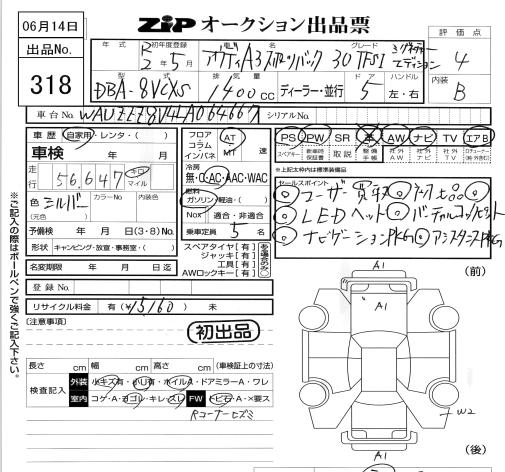 06月14日
ZIP オークション出品票
出品No.
318
年式 初年度登録 車名 グレード
R2年5月 アウディA3スポーツバック 30TFSI
評価点
4
型式 排気量 ドア ハンドル
DBA-8VCXS 1400cc ディーラー・並行 5 左・右
内装
B
車台No. シリアルNo.
車歴 自家用・レンタ・( )
車検 年 月
走行 56,647 キロ マイル
色 シルバー カラーNo 内装色
(元色)
予備検 年 月 日(3・8)No.
形状 キャンピング・放宣・事務室・( )
名変期限 年 月 日迄
登録No.
リサイクル料金 有(¥15160) 未
(注意事項)
初出品
フロア コラム インパネ AT MT 速
冷房
無・C・AC・AAC・WAC
燃料
ガソリン・軽油・( )
Nox 適合・非適合
乗車定員 5 名
スペアタイヤ[有]
ジャッキ[有]
工具[有]
AWロックキー[有]
PS PW SR 本 AW ナビ TV エアB
スペアキー 新車時保証書 取説 整備手帳 社外AW 社外ナビ 社外TV
※上記太枠内は標準装備品
セールスポイント
◎ユーザー買取 ◎ワンオーナー
◎LEDヘッド ◎バーチャルコックピット
◎ナビゲーションPKG ◎アシスタンスPKG
(前)
A1
A1
W2
A1
(後)
長さ cm 幅 cm 高さ cm (車検証上の寸法)
検査記入 外装 小キズ有・小U有・ホイルA・ドアミラーA・ワレ
室内 コゲ・A・ヨゴレ・キレ・スレ FW トビ石・A・×要ス
Rコーナーヒズミ
※ご記入の際はボールペンで強くご記入下さい。